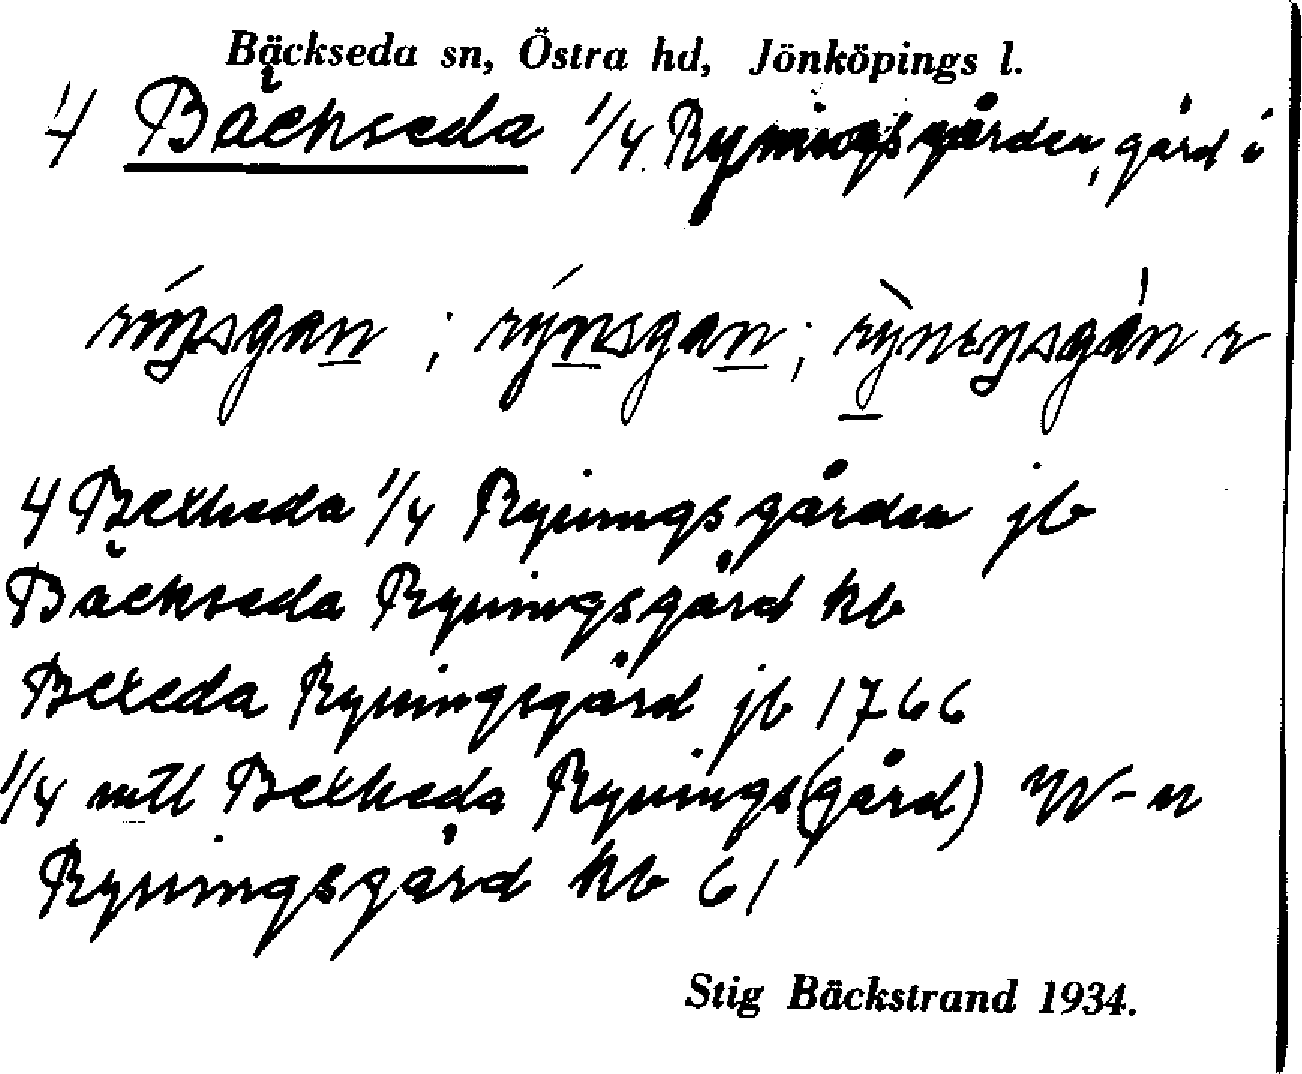 Bäckseda sn, Östra hd, Jönköpings l.
4 Bäckseda 1/4 Ryningsgården, gård i
4 Bexheda 1/4 Ryningsgården jb
Bäckseda Ryningsgård kb
Bexeda Ryningsgård jb 1766
1/4 mtl Bexheda Rynings(gård) W-n
Ryningsgård kb 61
Stig Bäckstrand 1934.